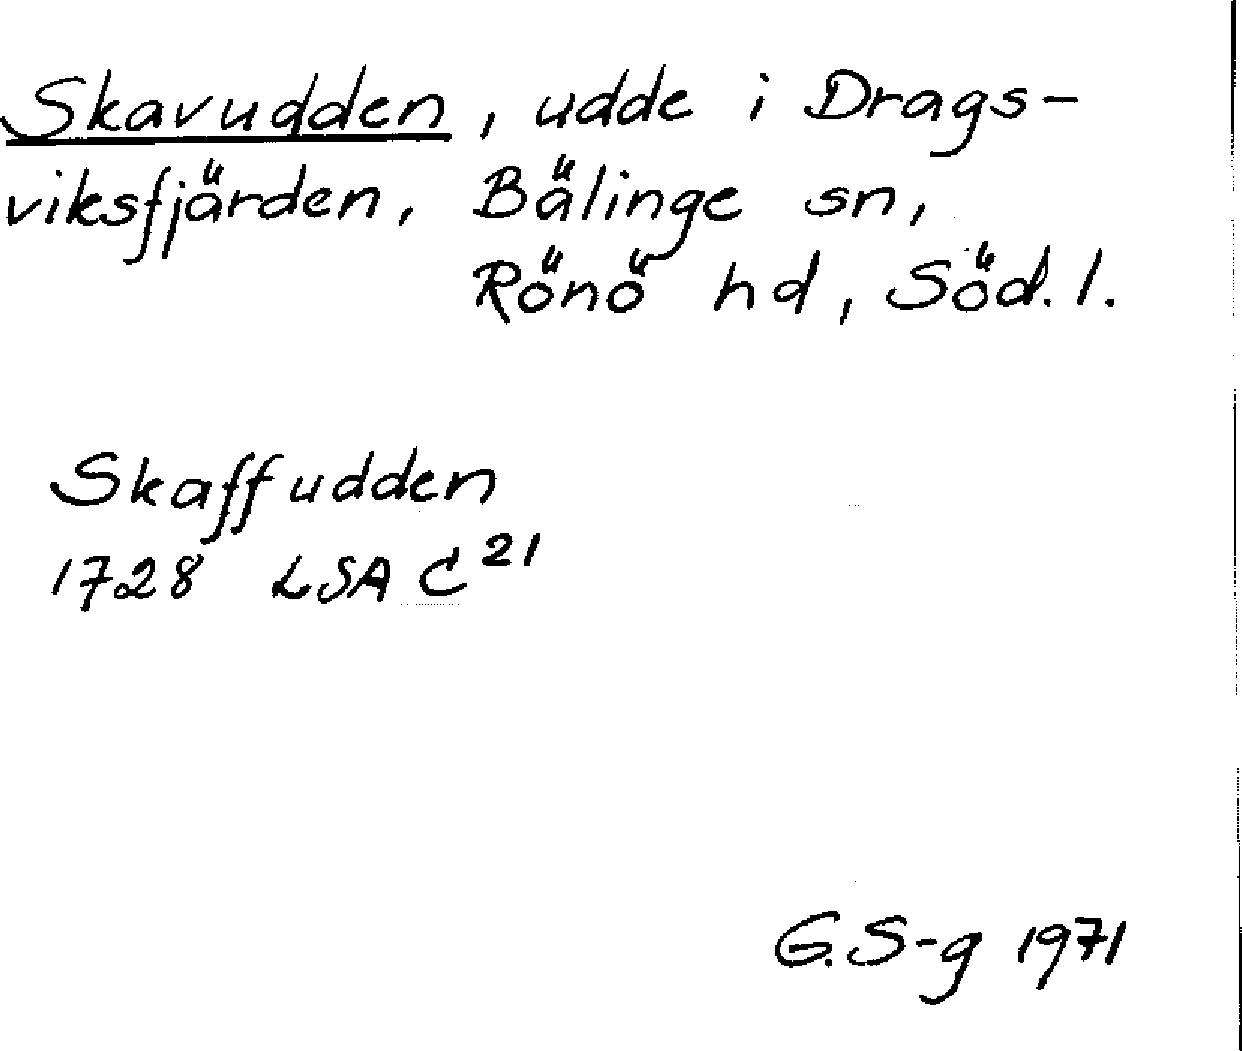 Skavudden, udde i Drags-
viksfjärden, Bälinge sn,
Rönö hd, Söd. l.
Skaffudden
1728 LSA C 21
G. S-g 1971